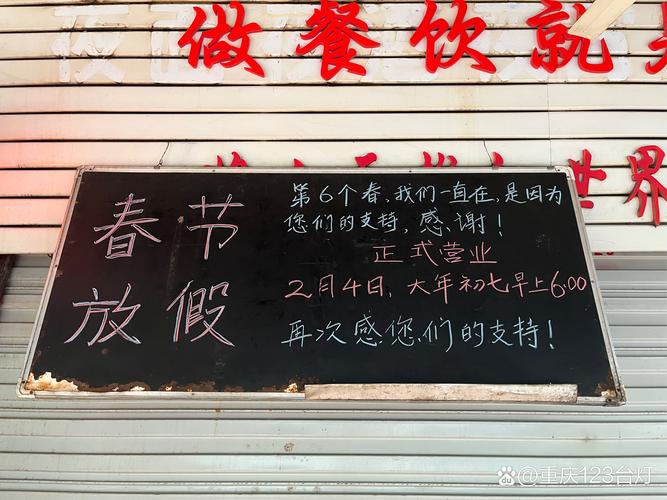 做餐饮就
世界
春节
放假
第6个春，我们一直在，是因为
您们的支持，感谢！
正式营业
2月4日，大年初七早上6:00
再次感您们的支持！
@重庆123台灯